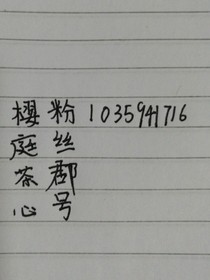 樱粉1035941716
庭丝
茶郡
心号